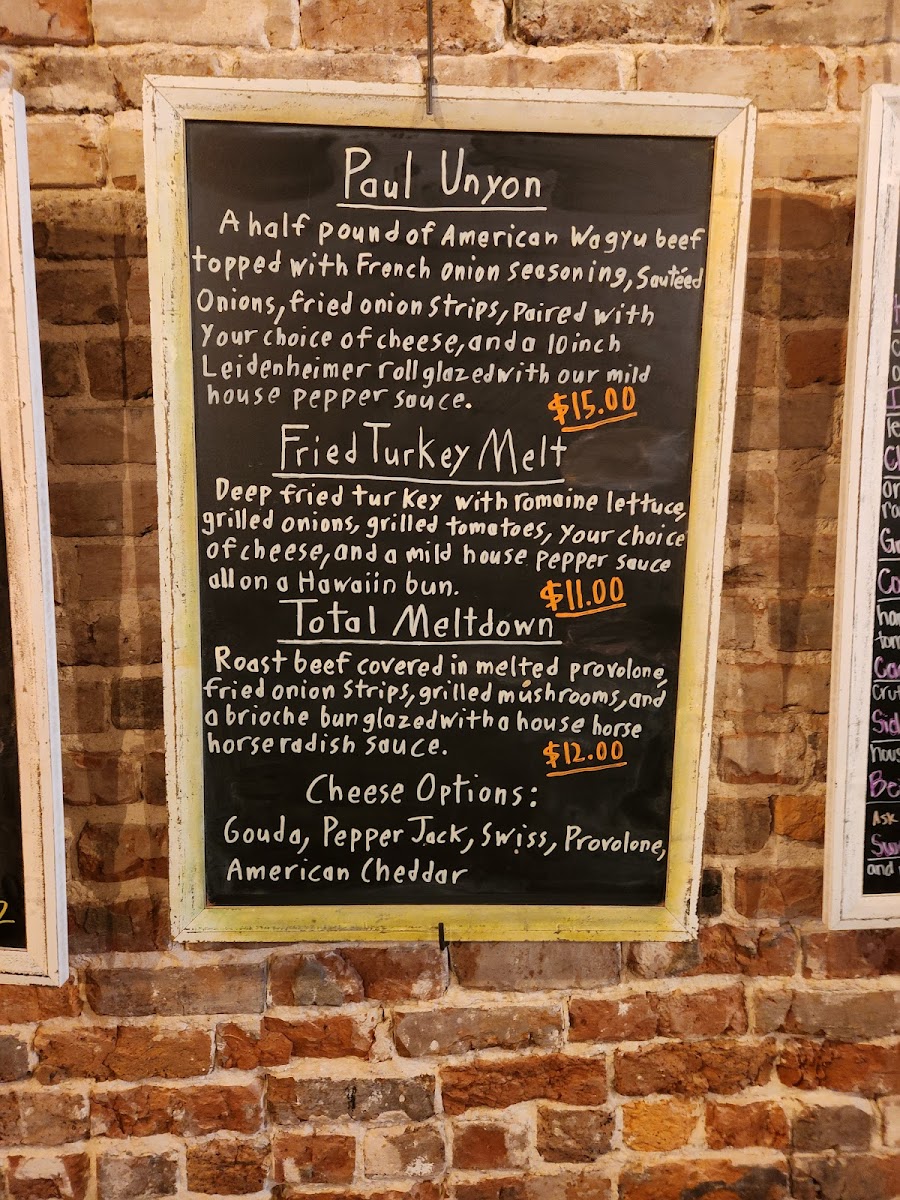 Paul Unyon
A half pound of American Wagyu beef
topped with French onion seasoning, Sautéed
Onions, fried onion strips, paired with
your choice of cheese, and a 10 inch
Leidenheimer roll glazed with our mild
house pepper sauce.
$15.00
Fried Turkey Melt
Deep fried turkey with romaine lettuce,
grilled onions, grilled tomatoes, your choice
of cheese, and a mild house pepper sauce
all on a Hawaiin bun.
$11.00
Total Meltdown
Roast beef covered in melted provolone,
fried onion strips, grilled mushrooms, and
a brioche bun glazed with a house horse
horseradish sauce.
$12.00
Cheese Options:
Gouda, Pepper Jack, Swiss, Provolone,
American Cheddar
2
Ask
and